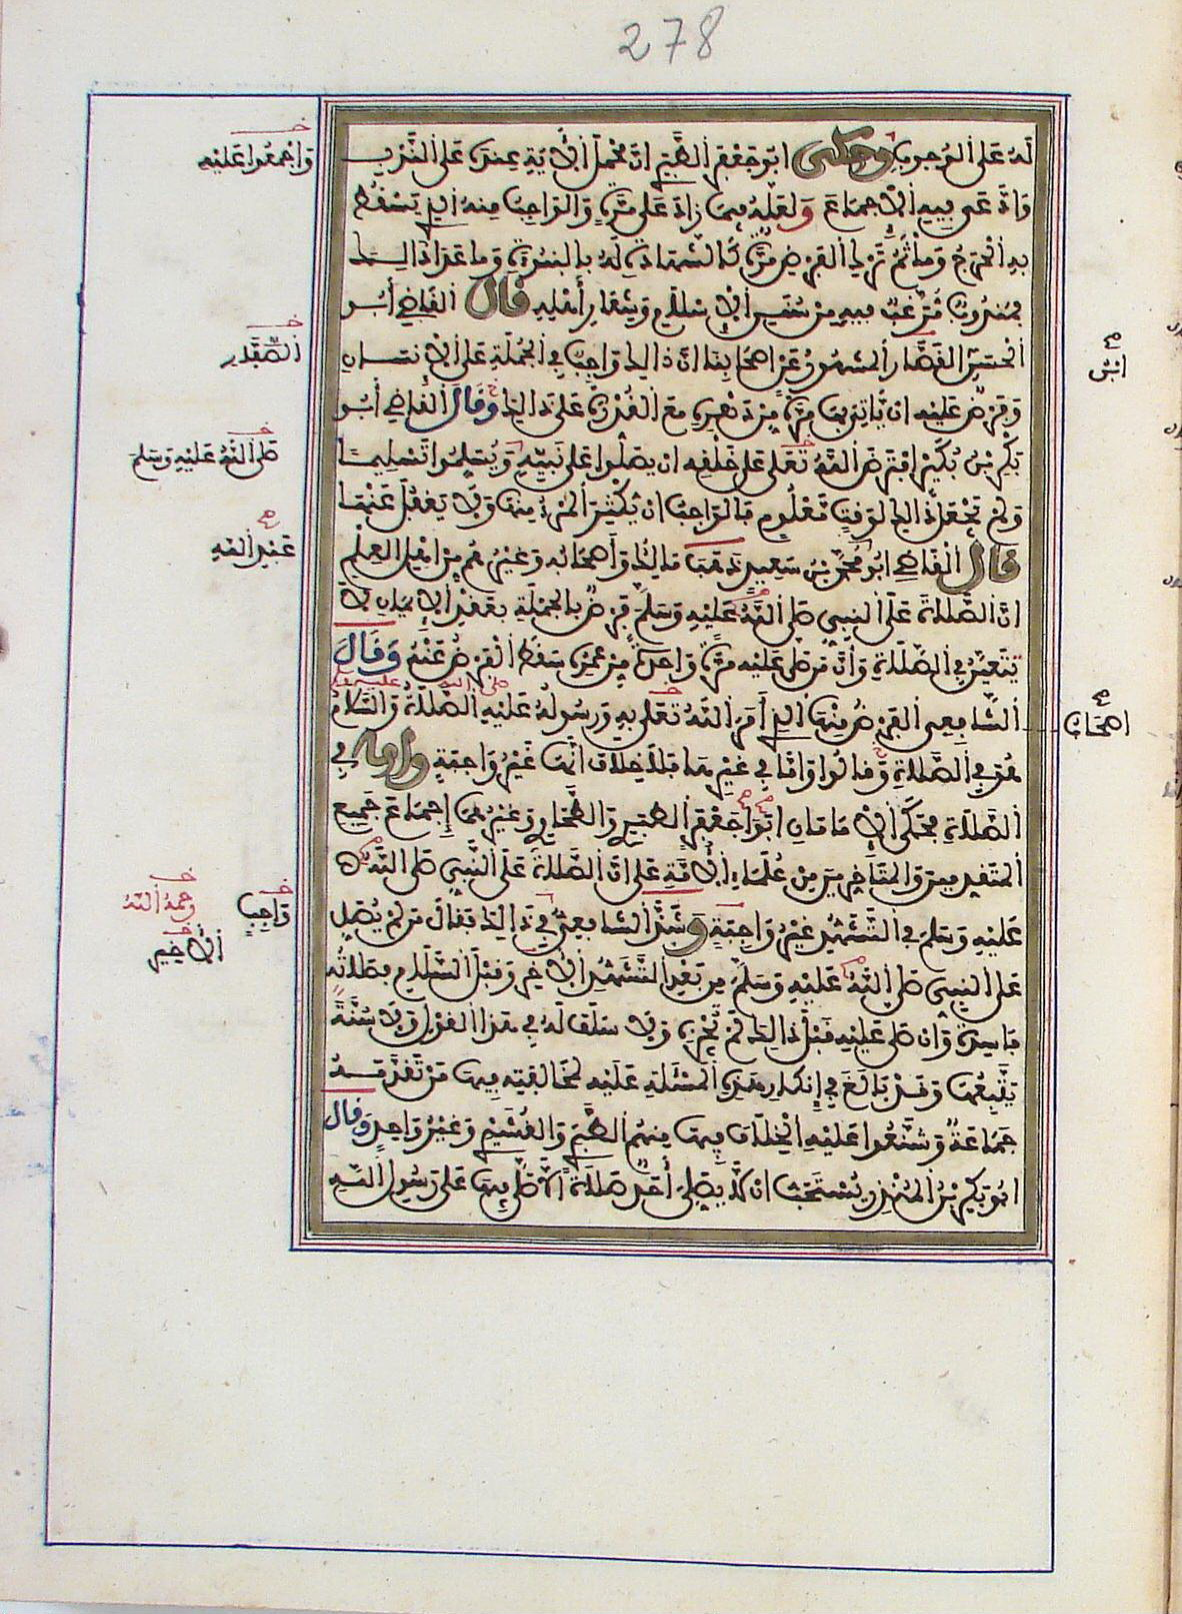 278
لَهُ عَلَى الْوُجُوبِ وحكى ابُو جَعْفَر الطَّبَرِي انَّ مَحْمَلَ الْآيَةِ عِنْدَهُ عَلَى النَّدْبِ
وَادَّعَى فِيهِ الْاجْمَاعَ وَلَعَلَّهُ فِيمَا زَادَ عَلَى مَرَّةٍ وَالْوَاجِبُ مِنْهُ الذِي يَسْقُطُ
بِهِ الْحَرَجُ وَمَأْثَمُ تَرْكِ الْفَرْضِ مَرَّةً كَالشَّهَادَةِ لَهُ بِالنُّبُوَّةِ وَمَا عَدَا ذَالِكَ
فَمَنْدُوبٌ مُرَغَّبٌ فِيهِ مِنْ سُنَنِ الْإِسْلَامِ وَشِعَارِ أَهْلِهِ قال الْقَاضِي أَبُو
الْحَسَنِ الْقَصَّارِ الْمَشْهُورُ عَنْ اصْحَابِنَا انَّ ذَالِكَ وَاجِبٌ فِي الْجُمْلَةِ عَلَى الْانْسَانِ
وَفَرْضٌ عَلَيْهِ انْ يَّاتِيَ بِهَا مَرَّةً مِنْ دَهْرِهِ مَعَ الْقُدْرَةِ عَلَى ذَالِكَ وَقَالَ الْقَاضِي أَبُو
بَكْرِ بْنُ بُكَيْرٍ افْتَرَضَ اللَّهُ تَعَلَى عَلَى خَلْقِهِ انْ يُصَلُّوا عَلَى نَبِيِّهِ وَيُسَلِّمُوا تَسْلِيمًا
وَلَمْ يَجْعَلْ ذَالِكَ لِوَقْتٍ مَّعْلُومٍ فَالْوَاجِبُ انْ يُكْثِرَ الْمَرْءُ مِنْهَا وَلَا يَغْفُلَ عَنْهَا
قال الْقَاضِي ابُو مُحَمَّدِ بْنُ سَعِيدٍ ذَهَبَ مَالِكٌ وَأَصْحَابُهُ وَغَيْرُهُمْ مِنْ اهْلِ الْعِلْمِ
انَّ الصَّلَاةَ عَلَى النَّبِيِّ صَلَّى اللَّهُ عَلَيْهِ وَسَلَّمَ فَرْضٌ بِالْجُمْلَةِ بِعَقْدِ الْإِيمَانِ لَا
تَتَعَيَّنُ فِي الصَّلَاةِ وَأَنَّ مَنْ صَلَّى عَلَيْهِ مَرَّةً وَاحِدَةً مِنْ عُمْرِهِ سَقَطَ الْفَرْضُ عَنْهُ وَقَالَ
الشَّافِعِي الْفَرْضُ مِنْهَا الذِي أَمَرَ اللَّهُ تَعَلَى بِهِ وَرَسُولُهُ عَلَيْهِ الصَّلَاةُ وَالسَّلَامُ
هُوَ فِي الصَّلَاةِ وَقَالُوا وَامَّا فِي غَيْرِهَا فَلَا خِلَافَ انَّهَا غَيْرُ وَاجِبَةٍ وامّا فِي
الصَّلَاةِ فَحَكَى الْإِمَامَانِ ابُو جَعْفَرٍ الطَّبَرِيّ وَالطَّحَاوِي وَغَيْرُهُمَا إِجْمَاعَ جَمِيعِ
الْمُتَقَدِّمِينَ وَالْمُتَأَخِّرِينَ مِنْ عُلَمَاءِ الْأُمَّةِ عَلَى انَّ الصَّلَاةَ عَلَى النَّبِيِّ صَلَّى اللَّهُ
عَلَيْهِ وَسَلَّمَ فِي التَّشَهُّدِ غَيْرُ وَاجِبَةٍ وَشَذَّ الشَّافِعِيُّ فِي ذَالِكَ فَقَالَ مَنْ لَمْ يُصَلِّ
عَلَى النَّبِيِّ صَلَّى اللَّهُ عَلَيْهِ وَسَلَّمَ مِنْ بَعْدِ التَّشَهُّدِ الْآخِرِ وَقَبْلَ السَّلَامِ فَصَلَاتُهُ
فَاسِدَةٌ وَانْ صَلَّى عَلَيْهِ قَبْلَ ذَالِكَ لَمْ تُجْزِهِ وَلَا سَلَفَ لَهُ فِي هَذَا الْقَوْلِ وَلَا سُنَّةَ
يَتَّبِعُهَا وَقَدْ بَالَغَ فِي إِنْكَارِ هَذِهِ الْمَسْئَلَةِ عَلَيْهِ لِمُخَالَفَتِهِ فِيهَا مَنْ تَقَدَّمَهُ
جَمَاعَةٌ وَشَنَّعُوا عَلَيْهِ الْخِلَافَ فِيهَا مِنْهُمُ الطَّبَرِي وَالْقُشَيْرِي وَغَيْرُ وَاحِدٍ وَقَالَ
ابُو بَكْرِ بْنُ الْمُنْذِرِ يُسْتَحَبُّ انْ لَّا يُصَلِّيَ أَحَدٌ صَلَاةً الَّا صَلَّى فِيهَا عَلَى رَسُولِ اللَّهِ
وَاجْمَعُوا عَلَيْهِ
صَلَّى اللَّهُ عَلَيْهِ وَسَلَّمَ
عَبْدِ اللَّهِ
وَاجِبٍ
رحمهُ اللَّهُ
الْأَخِيرِ
ابْنُ
اصْحَابُ